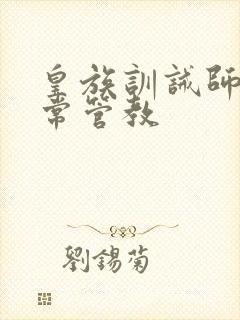 皇族訓誡師
常管教
劉錫菊